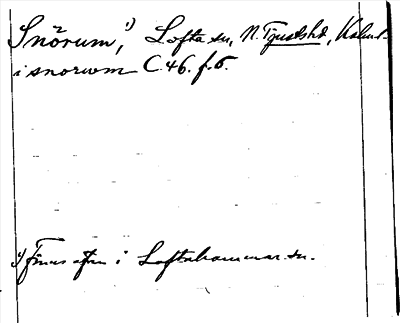 Snörum,¹) Lofta sn, N. Tjustshd, Kalm.
i snorwm C.46. f.6.
¹) Finns äfven i Loftahammar sn.